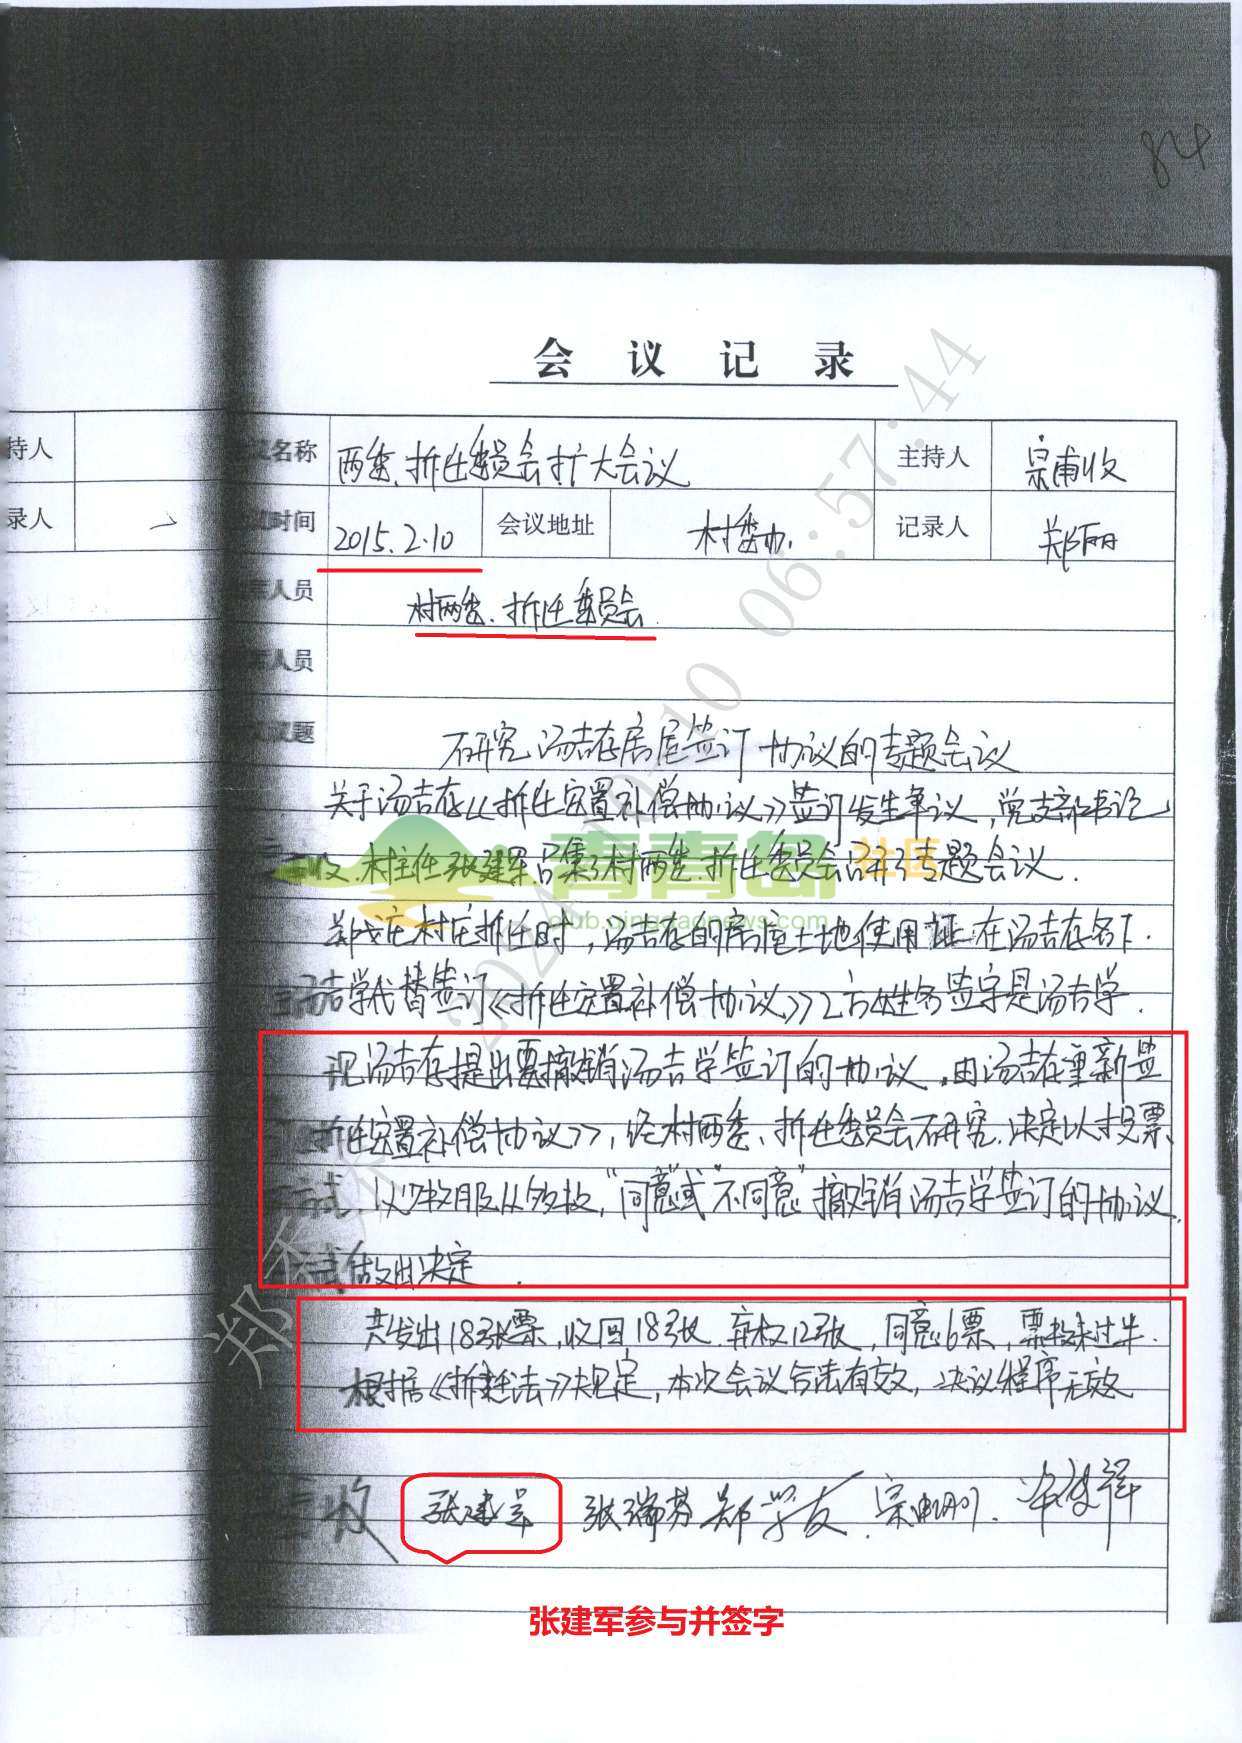 84
会 议 记 录
持人
名称
两委、拆迁委员会扩大会议
主持人
宗甫收
录人
时间
2015.2.10
会议地址
村委办.
记录人
郑丽
人员
村两委、拆迁委员会
人员
题
研究汤吉存房屋签订协议的专题会议
关于汤吉存《拆迁安置补偿协议》签订发生争议,党支部书记
收、村主任张建军召集了村两委、拆迁委员会召开了专题会议.
郑戈庄村庄拆迁时,汤吉存的房屋土地使用证在汤吉存名下.
汤吉学代替签订《拆迁安置补偿协议》乙方姓名签字是汤吉学.
现汤吉存提出要撤销汤吉学签订的协议,由汤吉存重新签
拆迁安置补偿协议》,经村两委、拆迁委员会研究,决定以投票
方式,以少数服从多数,“同意”或“不同意”撤销汤吉学签订的协议,
式做出决定.
共发出18张票,收回18张,弃权12张,同意6票,票数未过半.
根据《拆迁法》规定,本次会议合法有效,决议程序无效
收 张建军 张瑞芬 郑学友
张建军参与并签字
青青岛 社区
club.qingdaonews.com
2024 10-10 06:57:44